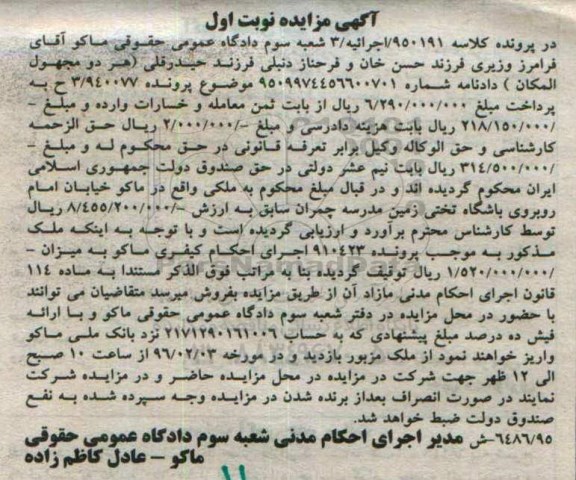 آگهی مزایده نوبت اول
در پرونده کلاسه ۹۵۰۱۹۱/اجرائیه/۳ شعبه سوم دادگاه عمومی حقوقی ماکو آقای
فرامرز وزیری فرزند حسن خان و فرحناز دنبلی فرزند حیدرقلی (هر دو مجهول
المکان ) دادنامه شماره ۹۵۰۹۹۷۴۴۵۶۶۰۰۷۰۱ موضوع پرونده ۳/۹۴۰۰۷۷ ح به
پرداخت مبلغ ۶/۲۹۰/۰۰۰/۰۰۰ ریال از بابت ثمن معامله و خسارات وارده و مبلغ -
/۲۱۸/۱۵۰/۰۰۰ ریال بابت هزینه دادرسی و مبلغ -/۲/۰۰۰/۰۰۰ ریال حق الزحمه
کارشناسی و حق الوکاله وکیل برابر تعرفه قانونی در حق محکوم له و مبلغ -
/۳۱۴/۵۰۰/۰۰۰ ریال بابت نیم عشر دولتی در حق صندوق دولت جمهوری اسلامی
ایران محکوم گردیده اند و در قبال مبلغ محکوم به ملکی واقع در ماکو خیابان امام
روبروی باشگاه تختی زمین مدرسه چمران سابق به ارزش -/۸/۴۵۵/۲۰۰/۰۰۰ ریال
توسط کارشناس محترم برآورد و ارزیابی گردیده است و با توجه به اینکه ملک
مذکور به موجب پرونده ۹۱۰۴۲۳ اجرای احکام کیفری ماکو به میزان -
/۱/۵۲۰/۰۰۰/۰۰۰ ریال توقیف گردیده بنا به مراتب فوق الذکر مستندا به ماده ۱۱۴
قانون اجرای احکام مدنی مازاد آن از طریق مزایده بفروش میرسد متقاضیان می توانند
با حضور در محل مزایده در دفتر شعبه سوم دادگاه عمومی حقوقی ماکو و با ارائه
فیش ده درصد مبلغ پیشنهادی که به حساب ۲۱۷۱۲۹۰۱۶۱۰۰۶ نزد بانک ملی ماکو
واریز خواهند نمود از ملک مزبور بازدید و در مورخه ۹۶/۰۲/۰۳ از ساعت ۱۰ صبح
الی ۱۲ ظهر جهت شرکت در مزایده در محل مزایده حاضر و در مزایده شرکت
نمایند در صورت انصراف بعداز برنده شدن در مزایده وجه سپرده شده به نفع
صندوق دولت ضبط خواهد شد.
۶۴۸۶/۹۵-ش مدیر اجرای احکام مدنی شعبه سوم دادگاه عمومی حقوقی
ماکو - عادل کاظم زاده
۱۱